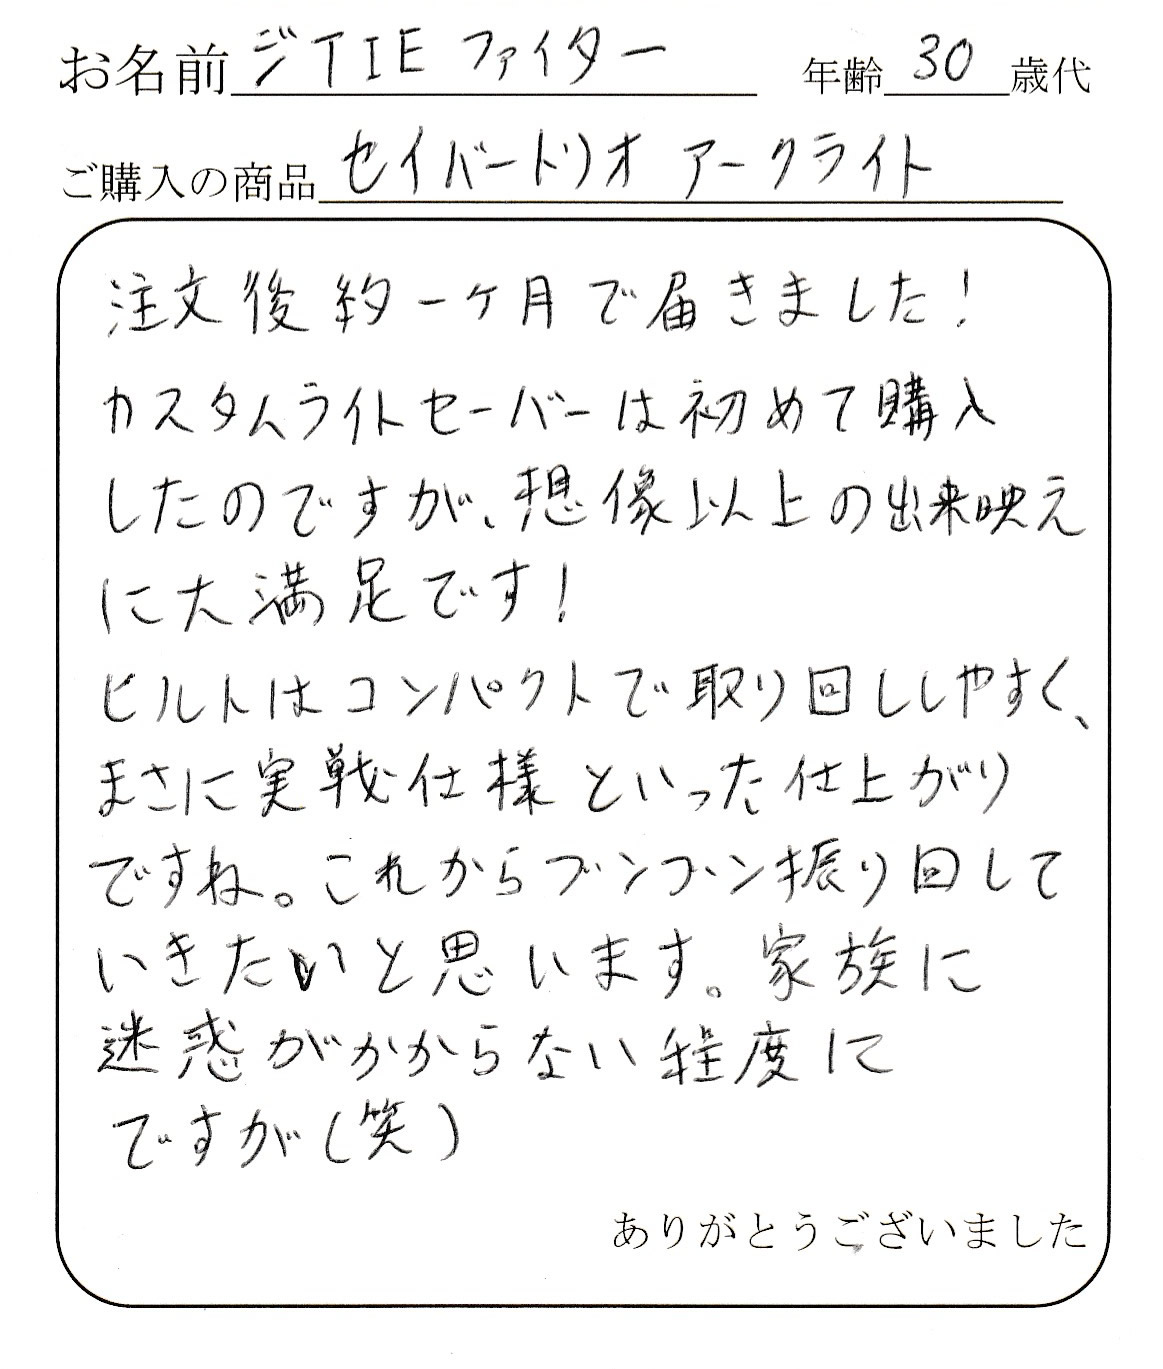 お名前 ジTIE ファイター 年齢 30 歳代
ご購入の商品 セイバードリオ アークライト
注文後約一ヶ月で届きました!
カスタムライトセーバーは初めて購入
したのですが、想像以上の出来映え
に大満足です!
ヒルトはコンパクトで取り回ししやすく、
まさに実戦仕様といった仕上がり
ですね。これからブンブン振り回して
いきたいと思います。家族に
迷惑がかからない程度に
ですが(笑)
ありがとうございました